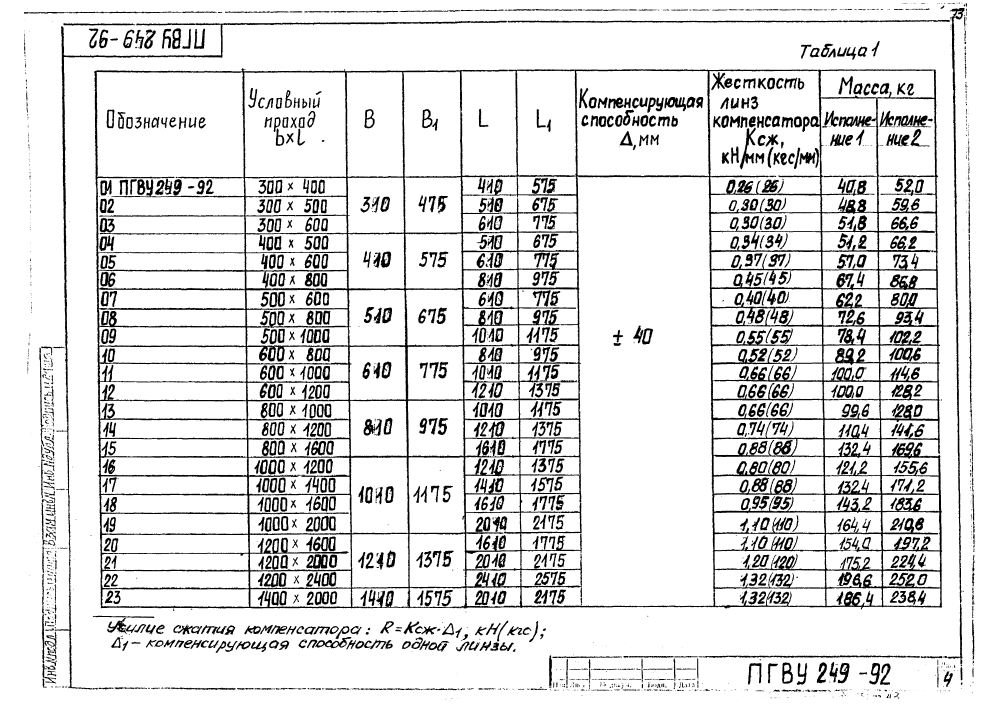 73
ПГВУ 249-92
Таблица 1
Обозначение | Условный проход b×l . | B | B1 | L | L1 | Компенсирующая способность Δ, мм | Жесткость линз компенсатора Kсж, кН/мм (кгс/мм) | Масса, кг Исполнение 1 | Исполнение 2
01 ПГВУ 249-92 | 300 × 400 | 310 | 475 | 410 | 575 | ± 40 | 0,26 (26) | 40,8 | 52,0
02 | 300 × 500 | 510 | 675 | 0,30 (30) | 48,8 | 59,6
03 | 300 × 600 | 610 | 775 | 0,30 (30) | 51,8 | 66,6
04 | 400 × 500 | 410 | 575 | 510 | 675 | 0,34 (34) | 51,2 | 66,2
05 | 400 × 600 | 610 | 775 | 0,37 (37) | 57,0 | 73,4
06 | 400 × 800 | 810 | 975 | 0,45 (45) | 67,4 | 86,8
07 | 500 × 600 | 510 | 675 | 610 | 775 | 0,40 (40) | 62,2 | 80,0
08 | 500 × 800 | 810 | 975 | 0,48 (48) | 72,6 | 93,4
09 | 500 × 1000 | 1010 | 1175 | 0,55 (55) | 78,4 | 102,2
10 | 600 × 800 | 610 | 775 | 810 | 975 | 0,52 (52) | 89,2 | 100,6
11 | 600 × 1000 | 1010 | 1175 | 0,66 (66) | 100,0 | 114,6
12 | 600 × 1200 | 1210 | 1375 | 0,66 (66) | 100,0 | 128,2
13 | 800 × 1000 | 810 | 975 | 1010 | 1175 | 0,66 (66) | 99,6 | 128,0
14 | 800 × 1200 | 1210 | 1375 | 0,74 (74) | 110,4 | 141,6
15 | 800 × 1600 | 1610 | 1775 | 0,88 (88) | 132,4 | 169,6
16 | 1000 × 1200 | 1010 | 1175 | 1210 | 1375 | 0,80 (80) | 121,2 | 155,6
17 | 1000 × 1400 | 1410 | 1575 | 0,88 (88) | 132,4 | 171,2
18 | 1000 × 1600 | 1610 | 1775 | 0,95 (95) | 143,2 | 183,6
19 | 1000 × 2000 | 2010 | 2175 | 1,10 (110) | 164,4 | 210,8
20 | 1200 × 1600 | 1210 | 1375 | 1610 | 1775 | 1,10 (110) | 154,0 | 197,2
21 | 1200 × 2000 | 2010 | 2175 | 1,20 (120) | 175,2 | 224,4
22 | 1200 × 2400 | 2410 | 2575 | 1,32 (132) | 196,6 | 252,0
23 | 1400 × 2000 | 1410 | 1575 | 2010 | 2175 | 1,32 (132) | 186,4 | 238,4
Усилие сжатия компенсатора: R=Kсж·Δ1, кН(кгс);
Δ1 – компенсирующая способность одной линзы.
ПГВУ 249-92
4